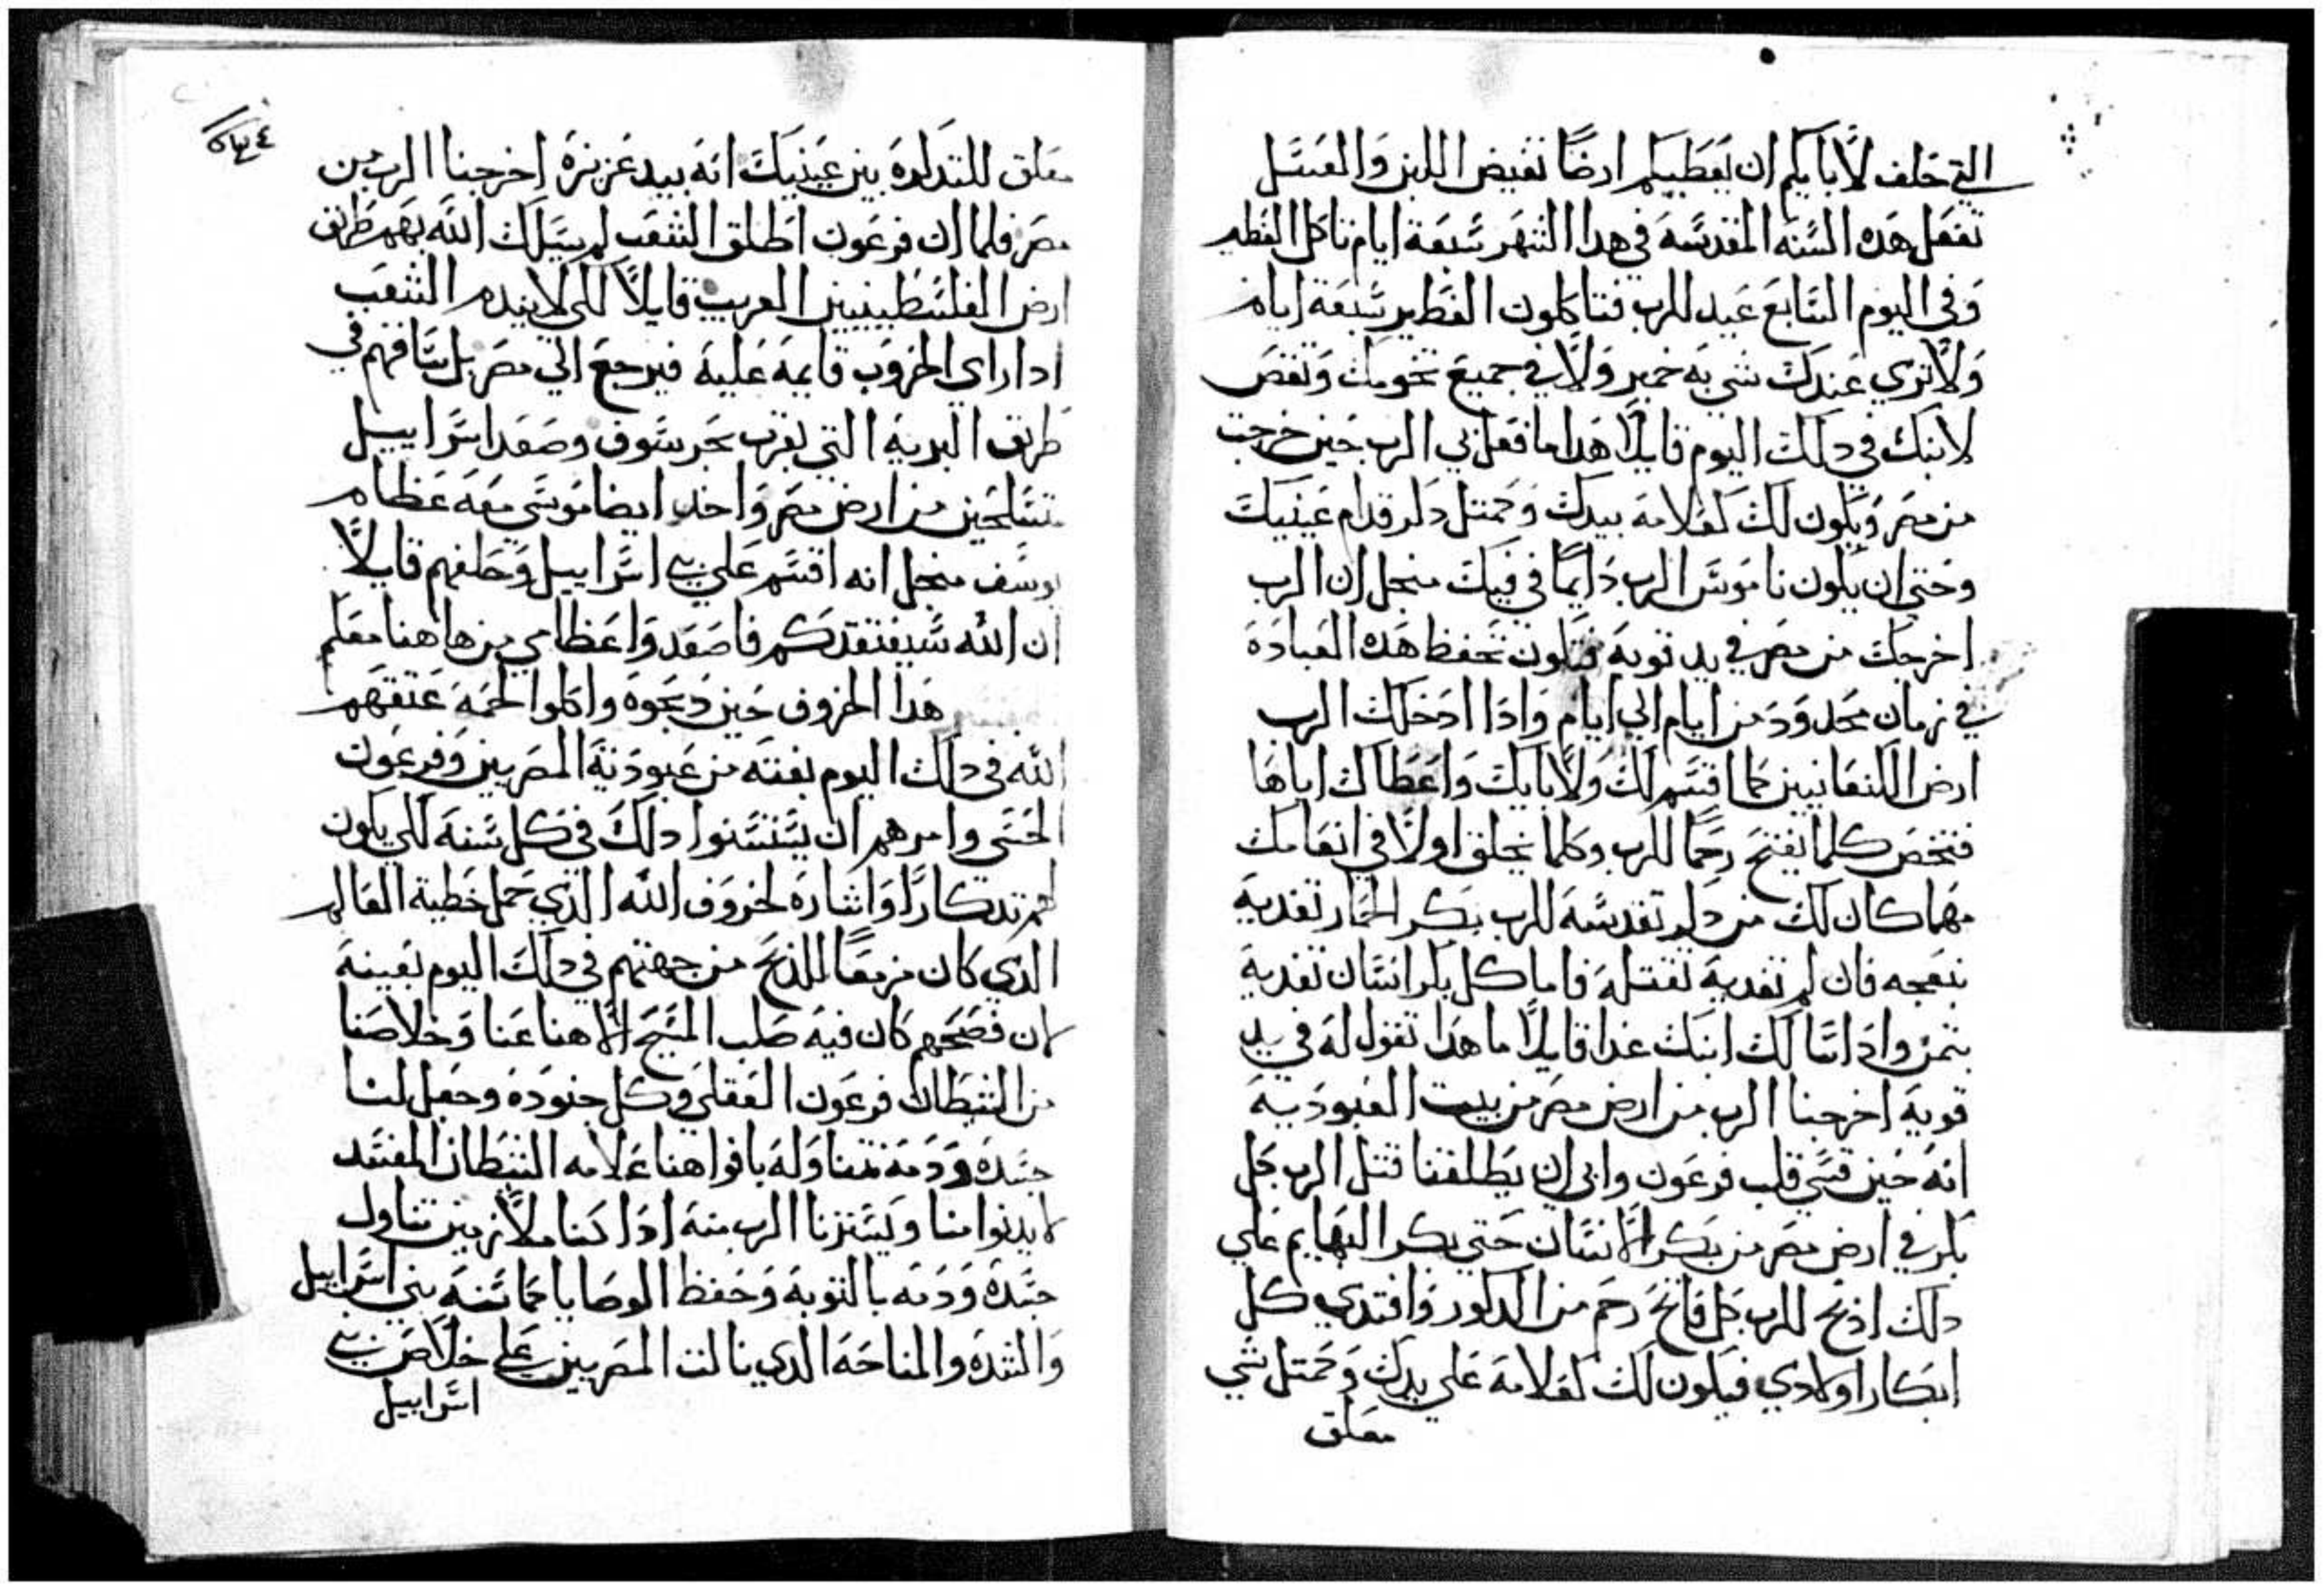 التي حلف لابايكم ان يعطيكم ارضًا تفيض اللبن والعسل
تفعل هده السنه المقدسة في هدا الشهر سبعة ايام تاكل الفطير
وفي اليوم السابع عيد للرب فتاكلون الفطير سبعة ايام
ولا تري عندك شي به خمير ولا في جميع تخومك وتقص
لابنك في دلك اليوم قايلًا هدا ما فعل بي الرب حين خرجت
من مصر ويكون لك لعلامة بيدك وحمتل دكر قدام عينيك
وحتي ان يكون ناموس الرب دايمًا في فيك منجل ان الرب
اخرجك من مصر في يد قوية فتكون تحفظ هده العبادة
في زمان محدود من ايام الي ايام وادا ادخلك الرب
ارض الكنعانيين كما اقسم لك ولابايك واعطاك اياها
فتخص كلما يفتح رحمًا للرب وكلما يخلق اولًا في انعامك
مهما كان لك من دكر تقدسة للرب بكر الحمار تفدية
بنعجه فان لم تفدية تقتلة فاما كل بكر انسان تفدية
بتمن وادا سالك ابنك غدا قايلًا ما هدا تقول له في يد
قوية اخرجنا الرب من ارض مصر من بيت العبودية
انه حين قسي قلب فرعون وابي ان يطلقنا قتل الرب كل
بكر في ارض مصر من بكر الانسان حتي بكر البهايم علي
دلك ادبح للرب كل فاتح رحم من الدكور وافتدي كل
ابكار اولادي فيكون لك لعلامة علي يدك وحمتل شي
معلق
معلق للتدكرة بين عينيك انه بيد عزيزة اخرجنا الرب من
مصر فلما ان فرعون اطلق الشعب لم يسلك الله بهم طريق
ارض الفلسطينيين القريب قايلًا لكي لا يندم الشعب
ادا راي الحروب قايمة علية فيرجع الي مصر بل ساقهم في
طريق البرية التي بقرب بحر سوف وصعد اسراييل
متسلحين من ارض مصر واخد ايضا موسي معه عظام
يوسف منجل انه اقسم علي بني اسراييل وحلفهم قايلًا
ان الله سيفتقدكم فاصعدوا عظامي من هاهنا معكم
هدا الخروف حين دبحوة واكلوا لحمة عتقهم
الله في دلك اليوم بعينه من عبودية المصريين وفرعون
الحسي وامرهم ان يستسنوا دلك في كل سنة لكي يكون
لهم تدكارًا واشارة لخروف الله الدي حمل خطية العالم
الدي كان مزمعًا للدبح من جهتهم في دلك اليوم بعينة
لان فصحهم كان فية صلب المسيح الاهنا عنا وخلاصنا
من الشيطان فرعون العقلي وكل جنودة وجعل لنا
جسدة ودمة نتناولة بافواهنا علامه الشيطان المفسد
لا يدنوا منا ويسترنا الرب منة ادا كنا ملازمين تناول
جسدة ودمه بالتوبة وحفظ الوصايا بني اسراييل
والشدة والمناحة الدي نالت المصريين علي خلاص بني
اسراييل